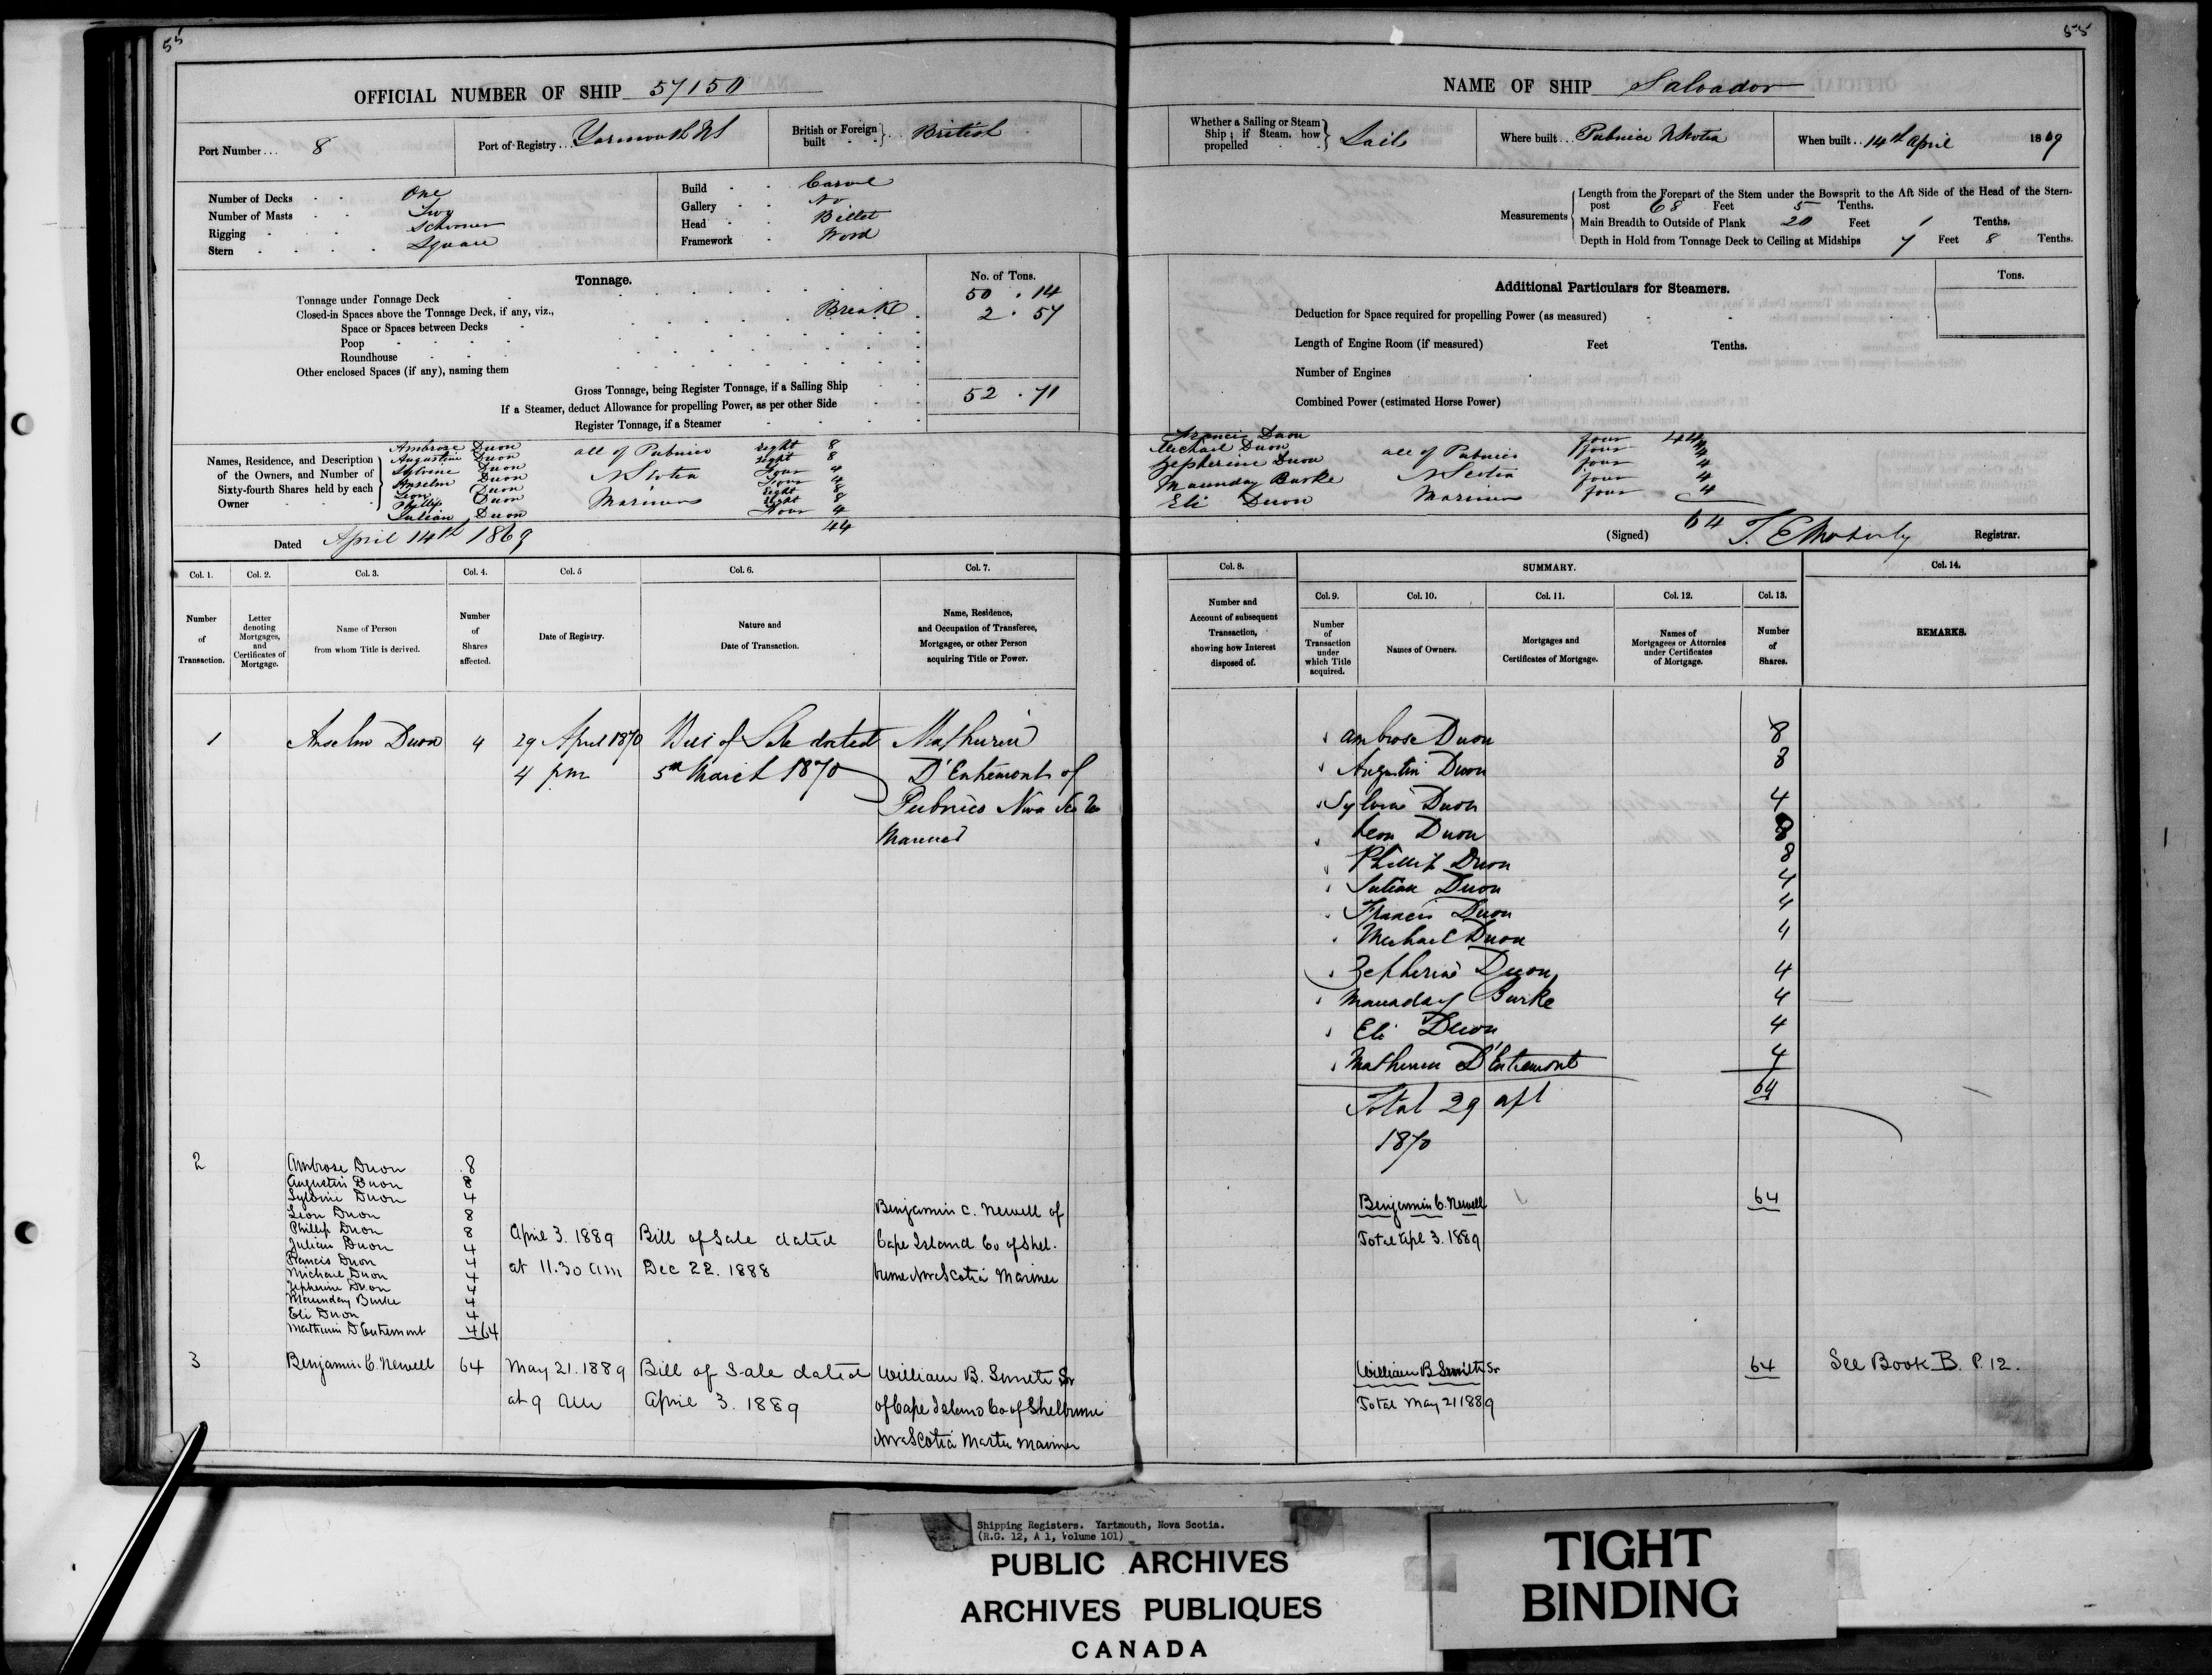 55
OFFICIAL NUMBER OF SHIP 57150
Port Number... 8
Port of Registry... Yarmouth NS
British or Foreign built British
Number of Decks One
Number of Masts Two
Rigging Schooner
Stern Square
Build Carvel
Gallery No
Head Billet
Framework Wood
Tonnage.
No. of Tons.
Tonnage under Tonnage Deck 50 . 14
Closed-in Spaces above the Tonnage Deck, if any, viz., Break 2 . 57
Space or Spaces between Decks
Poop
Roundhouse
Other enclosed Spaces (if any), naming them
Gross Tonnage, being Register Tonnage, if a Sailing Ship 52 . 71
If a Steamer, deduct Allowance for propelling Power, as per other Side
Register Tonnage, if a Steamer
Names, Residence, and Description of the Owners, and Number of Sixty-fourth Shares held by each Owner
Ambrose Duon eight 8
Augustin Duon eight 8
Sylvine Duon Four 4
Anselm Duon Four 4
Leon Duon Eight 8
Phillip Duon Eight 8
Julian Duon Four 4
all of Pubnico
N Scotia
Mariners
44
Dated April 14th 1869
Col. 1. Col. 2. Col. 3. Col. 4. Col. 5 Col. 6. Col. 7.
Number of Transaction.
Letter denoting Mortgages, and Certificates of Mortgage.
Name of Person from whom Title is derived.
Number of Shares affected.
Date of Registry.
Nature and Date of Transaction.
Name, Residence, and Occupation of Transferee, Mortgagee, or other Person acquiring Title or Power.
1 Anselm Duon 4 29 April 1870 Bill of Sale dated Mathurin
4 pm 5th March 1870 D'Entremont of
Pubnico Nova Scotia
Mariner
2 Ambrose Duon 8
Augustin Duon 8
Sylvine Duon 4
Leon Duon 8
Phillip Duon 8
Julian Duon 4
Francis Duon 4
Michael Duon 4
Zepherine Duon 4
Maunday Burke 4
Eli Duon 4
Mathurin D'Entremont 4 64
April 3. 1889
at 11.30 am
Bill of Sale dated
Dec 22. 1888
Benjamin C. Newell of
Cape Island Co of Shel-
burne Nova Scotia Mariner
3 Benjamin C. Newell 64 May 21. 1889 Bill of Sale dated William B. Smith Sr
at 9 am April 3. 1889 of Cape Island Co of Shelburne
Nova Scotia Master Mariner
55
NAME OF SHIP Salvador
Whether a Sailing or Steam Ship; if Steam, how propelled Sail
Where built... Pubnico N Scotia
When built.. 14th April 1869
Measurements
Length from the Forepart of the Stem under the Bowsprit to the Aft Side of the Head of the Stern-
post 68 Feet 5 Tenths.
Main Breadth to Outside of Plank 20 Feet 1 Tenths.
Depth in Hold from Tonnage Deck to Ceiling at Midships 7 Feet 8 Tenths.
Additional Particulars for Steamers.
Tons.
Deduction for Space required for propelling Power (as measured)
Length of Engine Room (if measured) Feet Tenths.
Number of Engines
Combined Power (estimated Horse Power)
44
Francis Duon four 4
Michael Duon four 4
Zepherine Duon four 4
Maunday Burke four 4
Eli Duon four 4
all of Pubnico
N Scotia
Mariners
64
(Signed) T. E. Moberly Registrar.
Col. 8. SUMMARY. Col. 14.
Col. 9. Col. 10. Col. 11. Col. 12. Col. 13.
Number and Account of subsequent Transaction, showing how Interest disposed of.
Number of Transaction under which Title acquired.
Names of Owners.
Mortgages and Certificates of Mortgage.
Names of Mortgagees or Attornies under Certificates of Mortgage.
Number of Shares.
REMARKS.
Ambrose Duon 8
Augustin Duon 8
Sylvine Duon 4
Leon Duon 8
Phillip Duon 8
Julian Duon 4
Francis Duon 4
Michael Duon 4
Zepherine Duon 4
Maunday Burke 4
Eli Duon 4
Mathurin D'Entremont 4
Total 29 apl 64
1870
Benjamin C. Newell 64
Total Apl 3. 1889
William B Smith Sr 64 See Book B. P. 12.
Total May 21 1889
Shipping Registers. Yartmouth, Nova Scotia.
(R.G. 12, A 1, Volume 101)
PUBLIC ARCHIVES
ARCHIVES PUBLIQUES
CANADA
TIGHT
BINDING